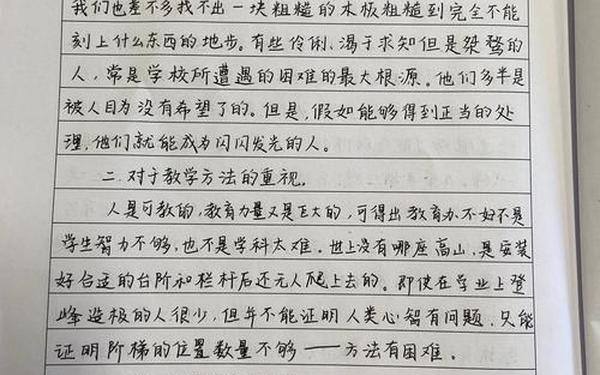 我们也差不多找不出一块粗糙的木板粗糙到完全不能
刻上什么东西的地步。有些伶俐、渴于求知但是桀骜的
人，常是学校所遭遇的困难的最大根源。他们多半是
被人目为没有希望了的。但是，假如能够得到正当的处
理，他们就能成为闪闪发光的人。
二.对于教学方法的重视。
人是可教的，教育力量又是巨大的，可得出教育办不好不是
学生智力不够，也不是学科太难。世上没有哪座高山，是安装
好合适的台阶和栏杆后还无人爬上去的。即使在学业上登
峰造极的人很少，但并不能证明人类心智有问题，只能
证明阶梯的位置数量不够——方法有困难。